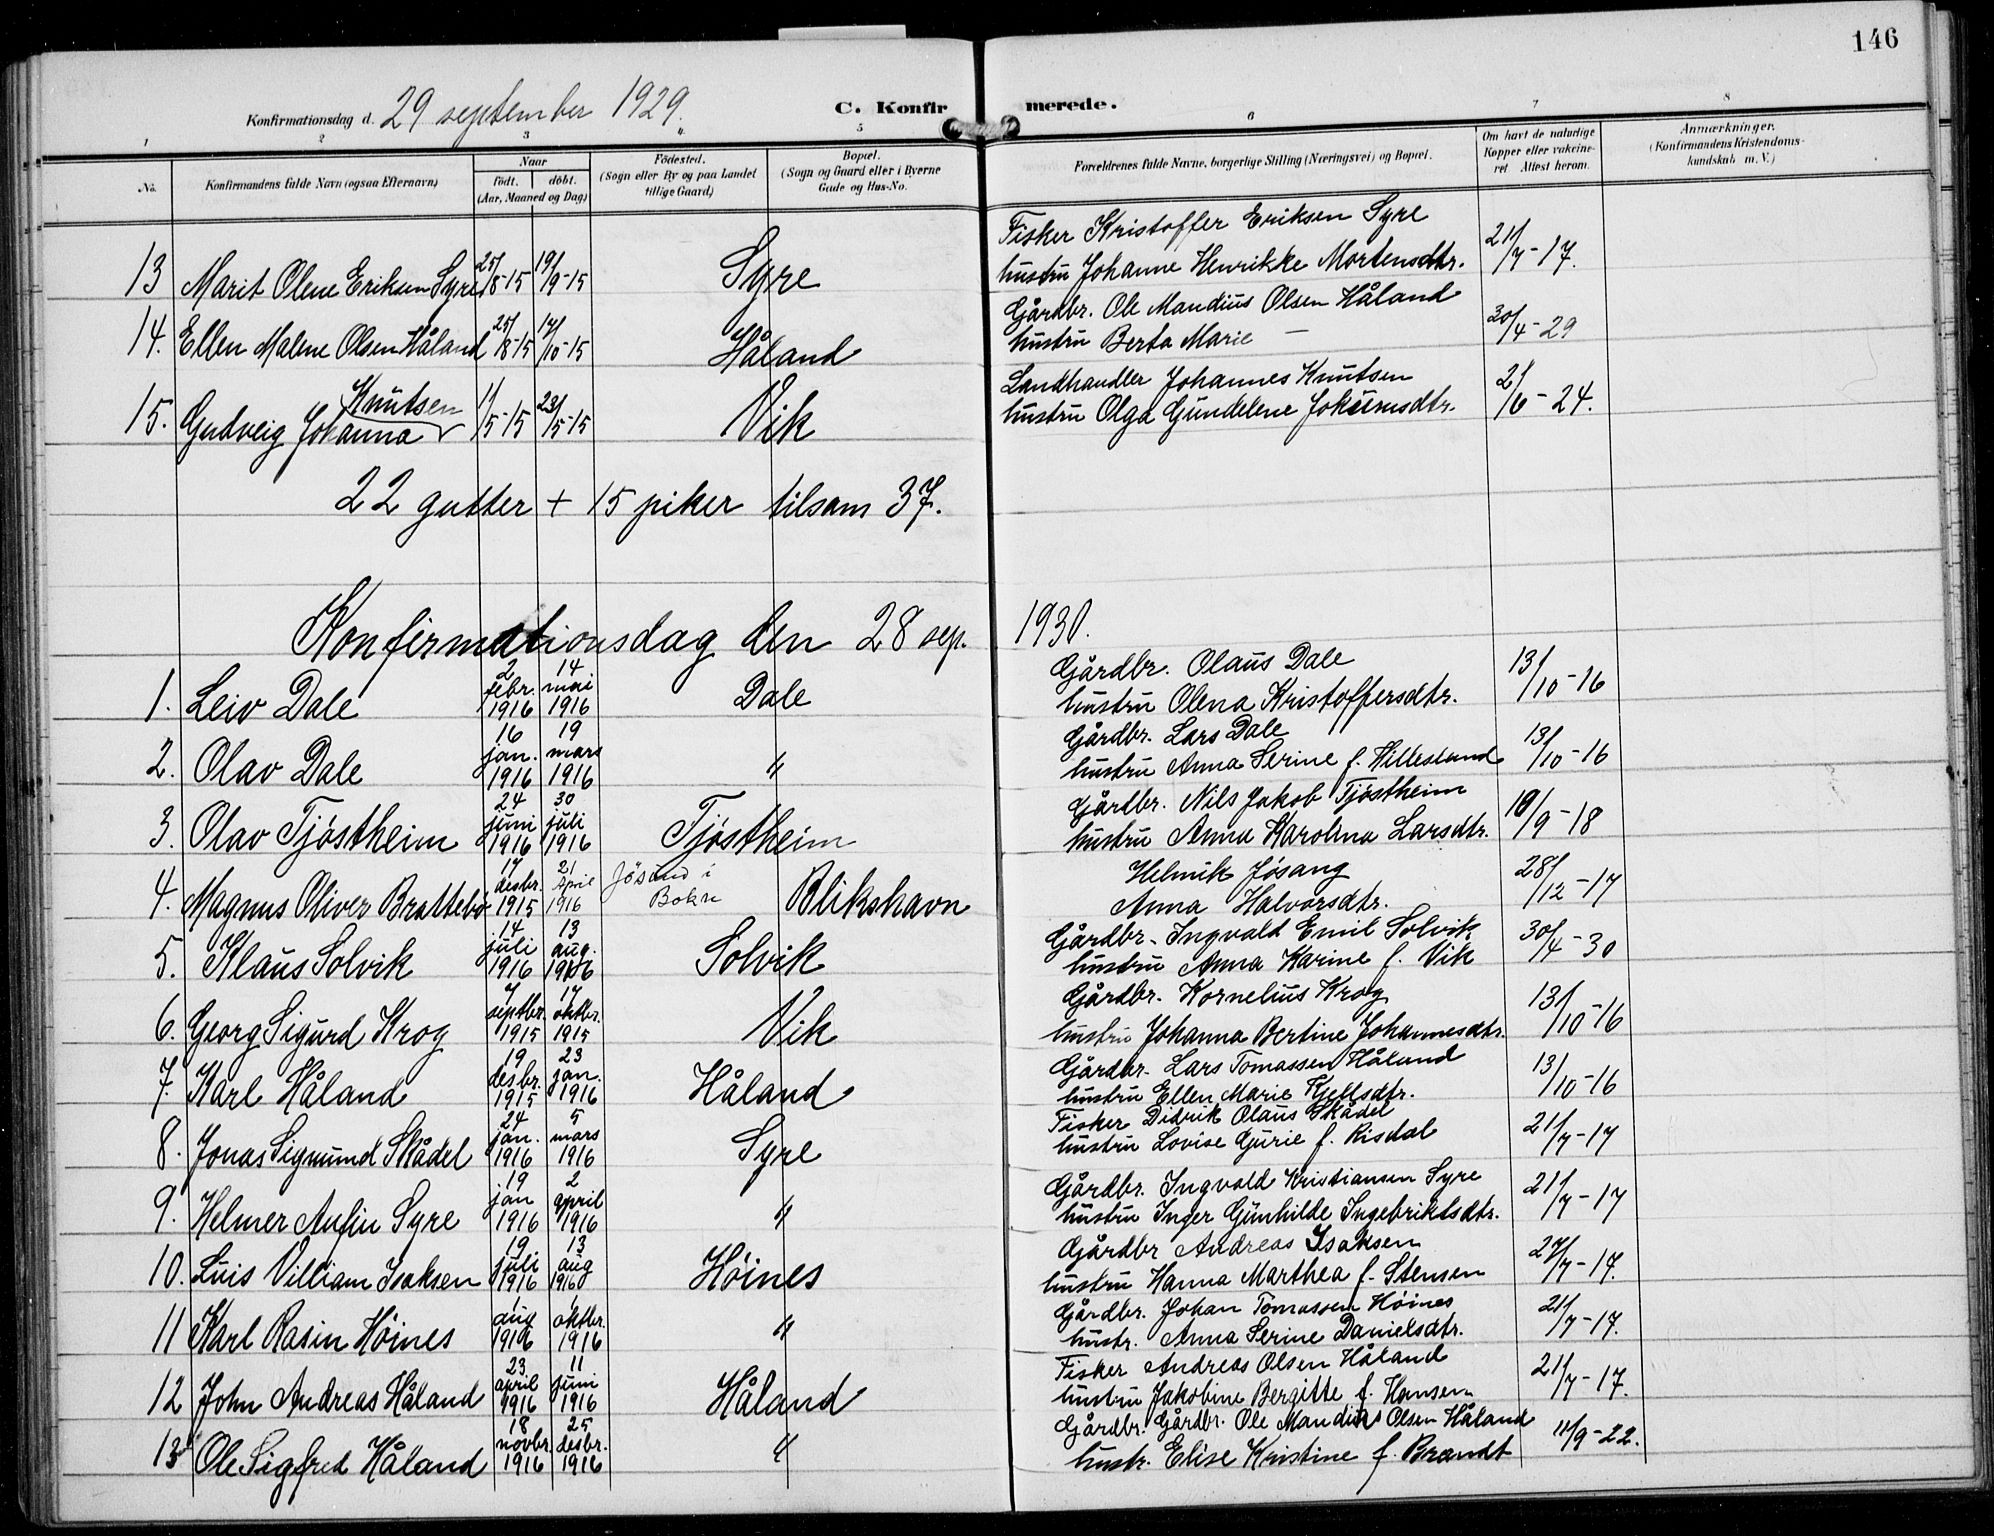 146
Konfirmationsdag d. 29 september 1929.
C. Konfirmerede.
1 2 3 4 5 6 7 8
No.
Konfirmandens fulde Navn (ogsaa Efternavn)
Naar
født. døbt.
(Aar, Maaned og Dag)
Fødested.
(Sogn eller By og paa Landet
tillige Gaard)
Bopæl.
(Sogn og Gaard eller i Byerne
Gade og Hus-No.
Forældrenes fulde Navne, borgerlige Stilling (Næringsvei) og Bopæl.
Om havt de naturlige
Kopper eller vakcine-
ret Attest herom.
Anmærkninger.
(Konfirmandens Kristendoms-
kundskab m. V.)
13 Marit Olene Eriksen Syre 25/8-15 19/9-15 Syre
Fisker Kristoffer Eriksen Syre
hustru Johanne Henrikke Mortensdtr. 21/7-17.
14. Ellen Malene Olsen Håland 25/8-15 17/10-15 Håland
Gårdbr. Ole Mandius Olsen Håland
hustru Berta Marie — 30/4-29
15. Gudveig Johanna Knutsen 11/5-15 23/5-15 Vik
Landhandler Johannes Knutsen
hustru Olga Gundelene Jokumsdtr. 2/6-24.
22 gutter + 15 piker tilsam 37.
Konfirmationsdag den 28 sep. 1930.
1. Leiv Dale 2 febr. 1916 14 mai 1916 Dale
Gårdbr. Olaus Dale
hustru Olena Kristoffersdtr. 13/10-16
2. Olav Dale 16 jan. 1916 19 mars 1916 "
Gårdbr. Lars Dale
hustru Anna Serine f. Hillesland 13/10-16
3. Olav Tjøstheim 24 juni 1916 30 juli 1916 Tjøstheim
Gårdbr. Nils Jakob Tjøstheim
hustru Anna Karolina Larsdtr. 19/9-18
4. Magnus Oliver Brattebø 17 desbr. 1915 21 April 1916 Jøsund i Bokn Blikshavn
Helmik Jøsang
Anna Halvorsdtr. 28/12-17
5. Klaus Solvik 14 juli 1916 13 aug. 1916 Solvik
Gårdbr. Ingvald Emil Solvik
hustru Anna Karine f. Vik 30/4-30
6. Georg Sigurd Krog 7 septbr. 1915 17 oktbr. 1915 Vik
Gårdbr. Kornelius Krog
hustru Johanna Bertine Johannesdtr. 13/10-16
7. Karl Håland 19 desbr. 1915 23 jan. 1916 Håland
Gårdbr. Lars Tomassen Håland
hustru Ellen Marie Kjellsdtr. 13/10-16
8. Jonas Sigmund Skådel 24 jan. 1916 5 mars 1916 Syre
Fisker Didrik Olaus Skådel
hustru Lovise Gurie f. Risdal 21/7-17
9. Helmer Anfin Syre 19 jan 1916 2 april 1916 "
Gårdbr. Ingvald Kristiansen Syre
hustru Inger Gunhilde Ingebriktsdtr. 21/7-17
10. Luis Villiam Isaksen 19 juli 1916 13 aug 1916 Høines
Gårdbr Andreas Isaksen
hustru Hanna Marthea f. Stensen 27/7-17.
11 Karl Rasin Høines 1 aug 1916 1 oktbr. 1916 "
Gårdbr. Johan Tomassen Høines
hustr. Anna Serine Danielsdtr. 21/7-17.
12 John Andreas Håland 23 april 1916 11 juni 1916 Håland
Fisker Andreas Olsen Håland
hustru Jakobine Bergitte f. Hansen 21/7-17.
13 Ole Sigfred Håland 18 novbr. 1916 25 desbr. 1916 "
Gårdbr. Gårdbr. Ole Mandius Olsen Håland
hustr. Elise Kristine f. Brandt 11/9-22.